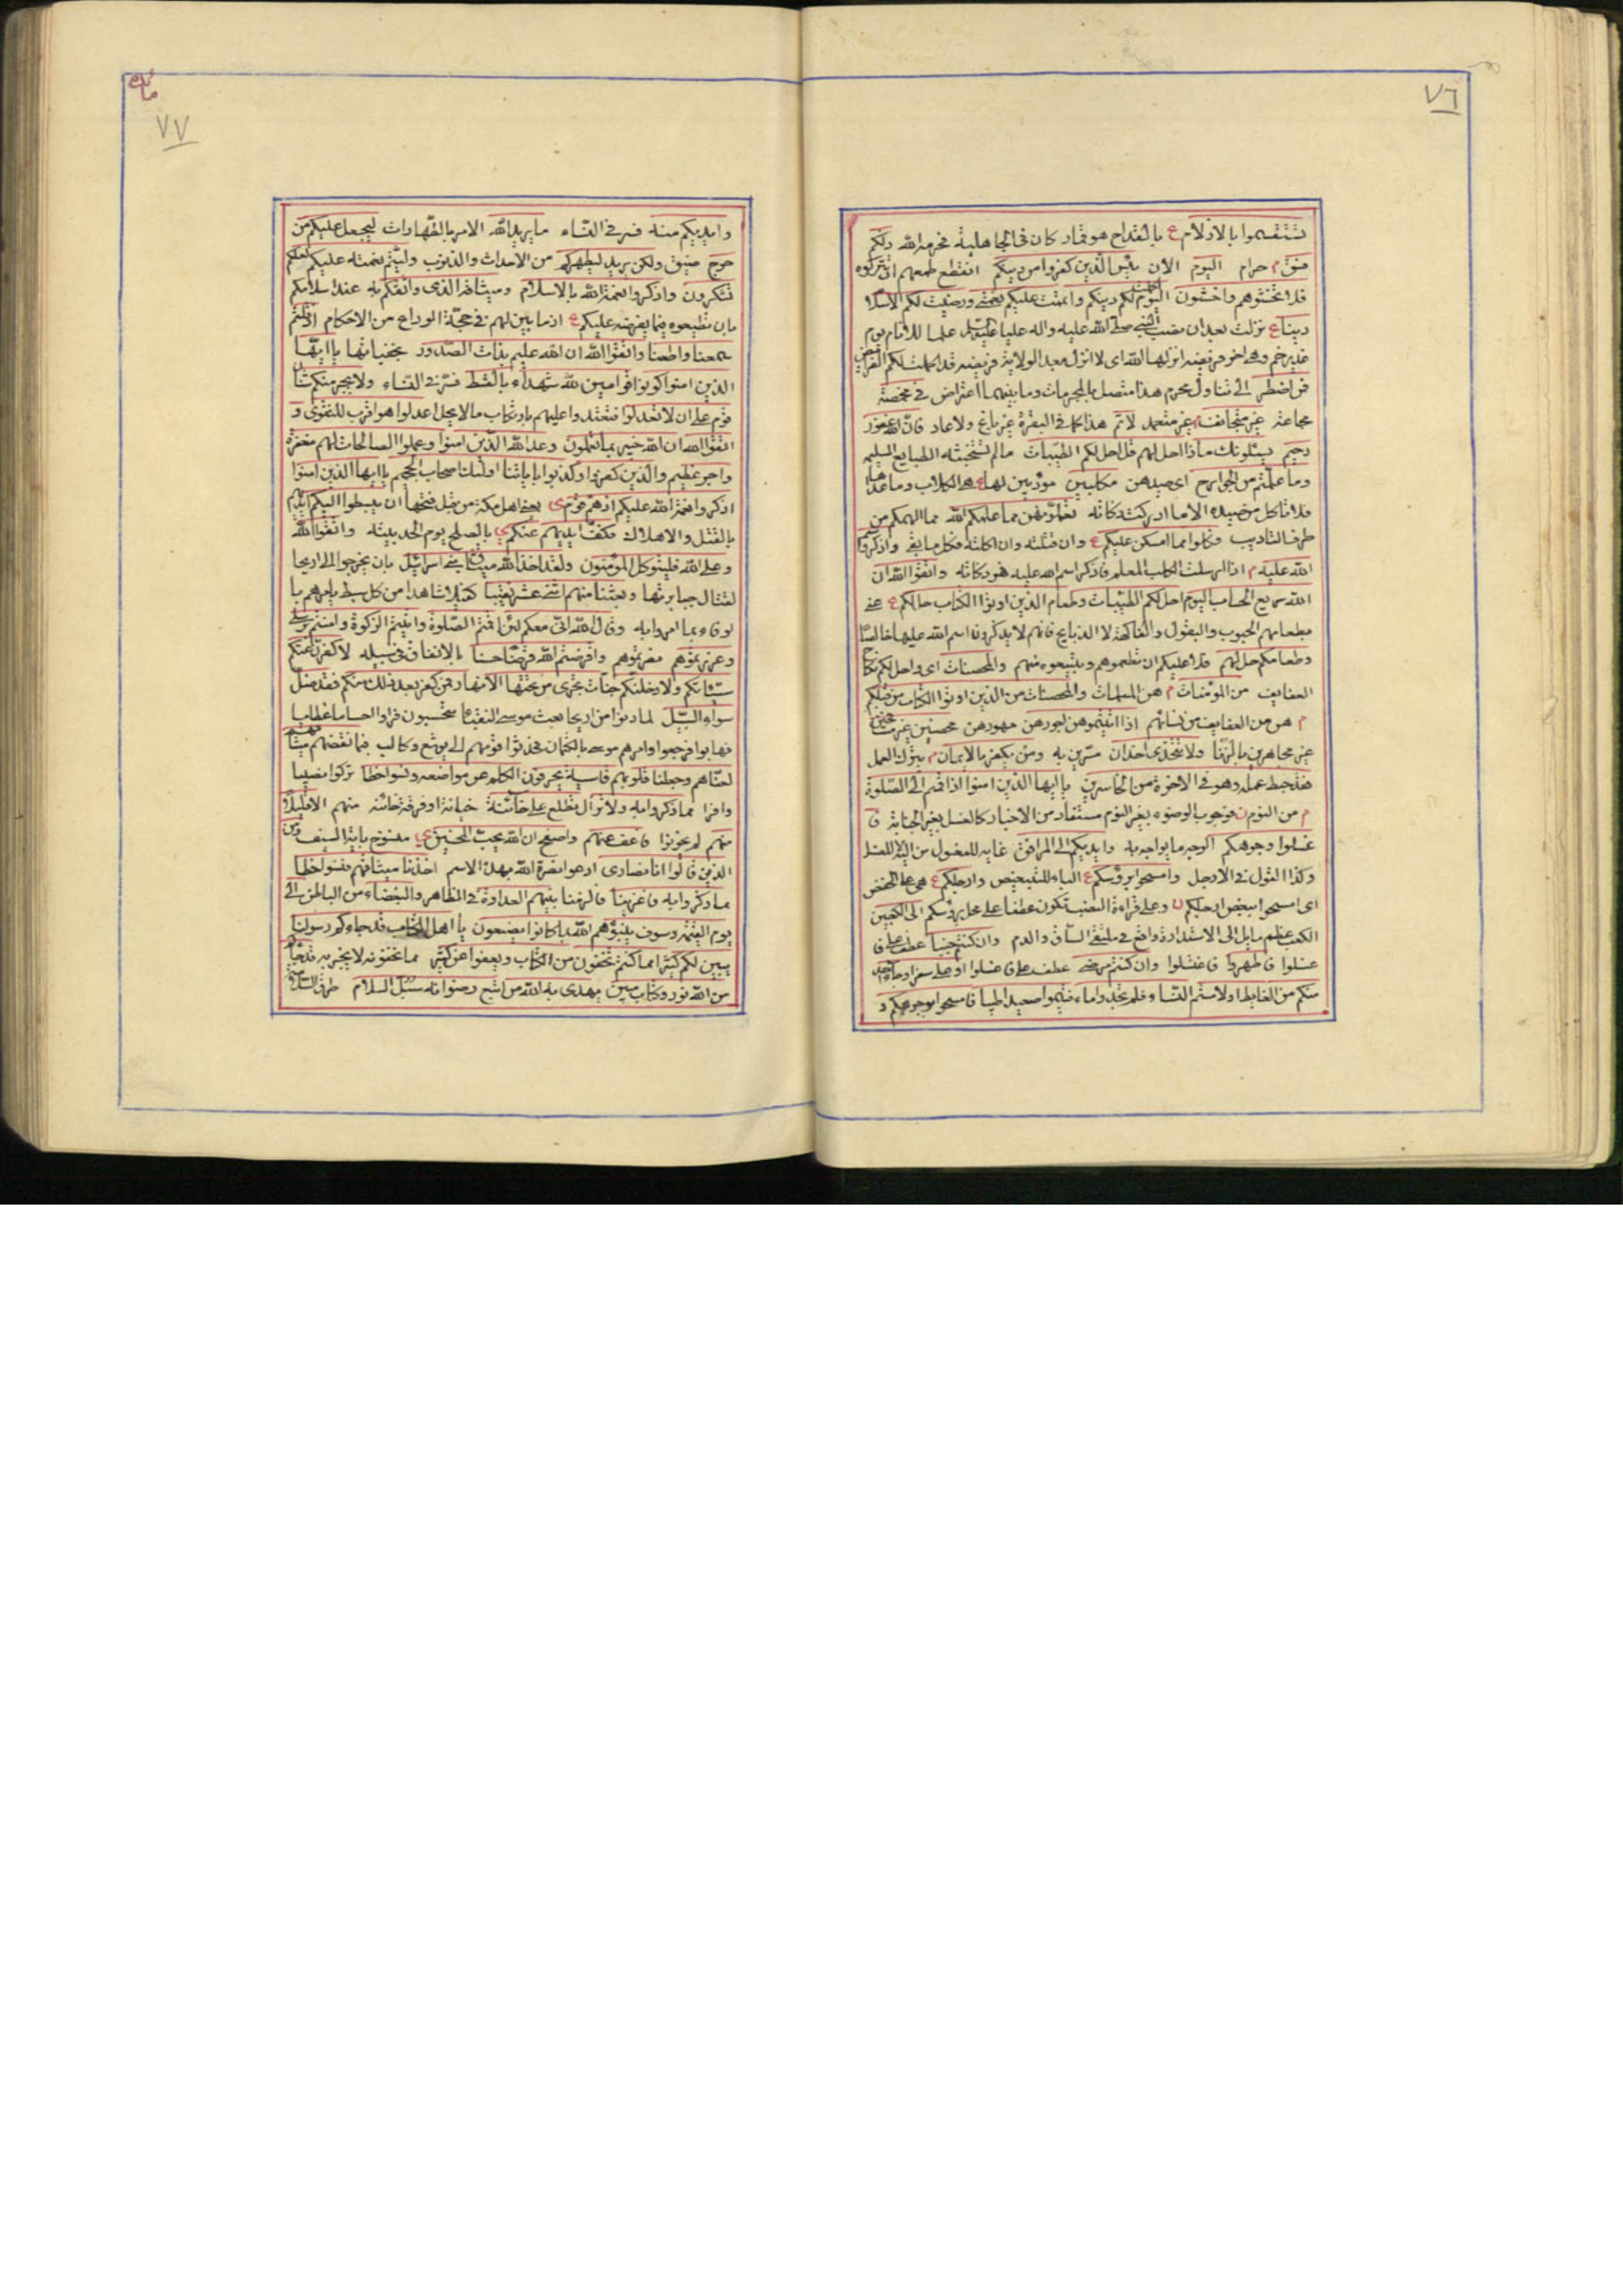 ٧٦
تستقسموا بالازلام ع بالقداح هو قمار كان فى الجاهلية فحرمه الله ذلكم
فسق م حرام اليوم الان يئس الذين كفروا من دينكم انقطع طمعهم ان تتركوه
فلا تخشوهم واخشون اليوم اكملت لكم دينكم واتممت عليكم نعمتى ورضيت لكم الاسلام
دينا ع نزلت بعد ان نصب النبى صلى الله عليه واله عليا عليه السلم علما للانام يوم
غدير خم وهى اخر فريضه انزلها الله اى لا انزل بعد الولاية فريضه قد اكملت لكم الفرايض
فمن اضطر الى تناول محرم هذا متصل بالمحرمات وما بينهما اعتراض فى مخمصة
مجاعة غير متجانف غير متعمد لاثم هذا كما فى البقرة غير باغ ولا عاد فان الله غفور
رحيم يسئلونك ماذا احل لهم قل احل لكم الطيبات ما لم تستخبثه الطبايع السليمه
وما علمتم من الجوارح اى صيدهن مكلبين مؤدبين لها ع هى الكلاب وما عداها
فلا تاكل من صيده الا ما ادركت ذكاته تعلمونهن مما علمكم الله مما الهمكم من
طرف التاديب فكلوا مما امسكن عليكم ع وان قتلته وان اكلمته فكل ما بقى واذكروا اسم
الله عليه م اذا ارسلت الكلب المعلم فاذكر اسم الله عليه فهو ذكاته واتقوا الله ان
الله سريع الحساب اليوم احل لكم الطيبات وطعام الذين اوتوا الكتاب حل لكم ع عنى
بطعامهم الحبوب والبقول والفاكهة لا الذبايح فانهم لا يذكرون اسم الله عليها خالصا
وطعامكم حل لهم فلا عليكم ان تطعموهم وتبيعوه منهم والمحصنات اى واحل لكم نكاح
العفايف من المؤمنات م هن المسلمات والمحصنات من الذين اوتوا الكتاب من قبلكم
م هن من العفايف من نسائهم اذا اتيتموهن اجورهن مهورهن محصنين غير مسافحين
غير مجاهرين بالزنا ولا متخذى اخدان مسرين به ومن يكفر بالايمان م بترك العمل
فقد حبط عمله وهو فى الاخرة من الخاسرين يا ايها الذين امنوا اذا قمتم الى الصلوة
م من النوم ن فوجوب الوضوء بغير النوم مستفاد من الاخبار كالغسل بغير الجنابة فا
غسلوا وجوهكم الوجه ما يواجه به وايديكم الى المرافق غايه للمغسول من اليد لا للغسل
وكذا القول فى الارجل وامسحوا برؤسكم ع الباء للتبعيض وارجلكم ع هى على الخفض
اى امسحوا ببعض ارجلكم ن وعلى قراءة النصب تكون عطفا على محل برؤسكم الى الكعبين
الكعب عظم مايل الى الاستدارة واقع فى ملتقى الساق والقدم وان كنتم جنبا عطف على فا
غسلوا فاطهروا فاغتسلوا وان كنتم مرضى عطف على فاغسلوا او على سفر او جاء احد
منكم من الغايط او لامستم النساء فلم تجدوا ماء فتيمموا صعيدا طيبا فامسحوا بوجوهكم و
مائده
٧٧
وايديكم منه فسر فى النساء ما يريد الله الامر بالطهارات ليجعل عليكم من
حرج ضيق ولكن يريد ليطهركم من الاحداث والذنوب وليتم نعمته عليكم لعلكم
تشكرون واذكروا نعمة الله بالاسلام وميثاقه الذى واثقكم به عند اسلامكم
بان تطيعوه فيما يفرضه عليكم ع اذ ما بين لهم فى حجة الوداع من الاحكام اذ قلتم
سمعنا واطعنا واتقوا الله ان الله عليم بذات الصدور بخفياتها يا ايها
الذين امنوا كونوا قوامين لله شهداء بالقسط فسر فى النساء ولا يجرمنكم شنآن
قوم على ان لا تعدلوا فتعتدوا عليهم بارتكاب ما لا يحل اعدلوا هو اقرب للتقوى و
اتقوا الله ان الله خبير بما تعملون وعد الله الذين امنوا وعملوا الصالحات لهم مغفرة
واجر عظيم والذين كفروا وكذبوا باياتنا اولئك اصحاب الجحيم يا ايها الذين امنوا
اذكروا نعمة الله عليكم اذ هم قوم ى يعنى اهل مكة من قبل فتحها ان يبسطوا اليكم ايديهم
بالقتل والاهلاك فكف ايديهم عنكم ى بالصلح يوم الحديبيته واتقوا الله
وعلى الله فليتوكل المؤمنون ولقد اخذ الله ميثاق بنى اسرائيل بان يخرجوا الى اريحا
لقتال جبابرتها وبعثنا منهم اثنى عشر نقيبا كفيلا شاهدا من كل سبط يامرهم با
لوفاء بما امروا به وقال الله انى معكم لئن اقمتم الصلوة واتيتم الزكوة وامنتم برسلى
وعزرتموهم نصرتموهم واقرضتم الله قرضا حسنا بالانفاق فى سبيله لاكفرن عنكم
سيئاتكم ولادخلنكم جنات تجرى من تحتها الانهار فمن كفر بعد ذلك منكم فقد ضل
سواء السبيل لما دنوا من اريحا بعث موسى النقباء يتجسسون فراوا اجساما عظاما
فهابوا فرجعوا وامرهم موسى بالكتمان فحدثوا قومهم الا يوشع وكالب فبما نقضهم ميثاقهم
لعناهم وجعلنا قلوبهم قاسية يحرفون الكلم عن مواضعه ونسوا حظا تركوا نصيبا
وافرا مما ذكروا به ولا تزال تطلع على خائنة خيانة او فرقة خائنه منهم الا قليلا
منهم لم يخونوا فاعف عنهم واصفح ان الله يحب المحسنين ى منسوخ باية السيف ومن
الذين قالوا انا نصارى ادعوا نصرة الله بهذا الاسم اخذنا ميثاقهم فنسوا حظا
مما ذكروا به فاغرينا فالزمنا بينهم العداوة فى الظاهر والبغضاء من الباطن الى
يوم القيمة وسوف ينبؤهم الله بما كانوا يصنعون يا اهل الكتاب قد جاءكم رسولنا
يبين لكم كثيرا مما كنتم تخفون من الكتاب ويعفوا عن كثير مما تخفونه لا يخبر به قد جاءكم
من الله نور وكتاب مبين يهدى به الله من اتبع رضوانه سبل السلام طرق السلامة